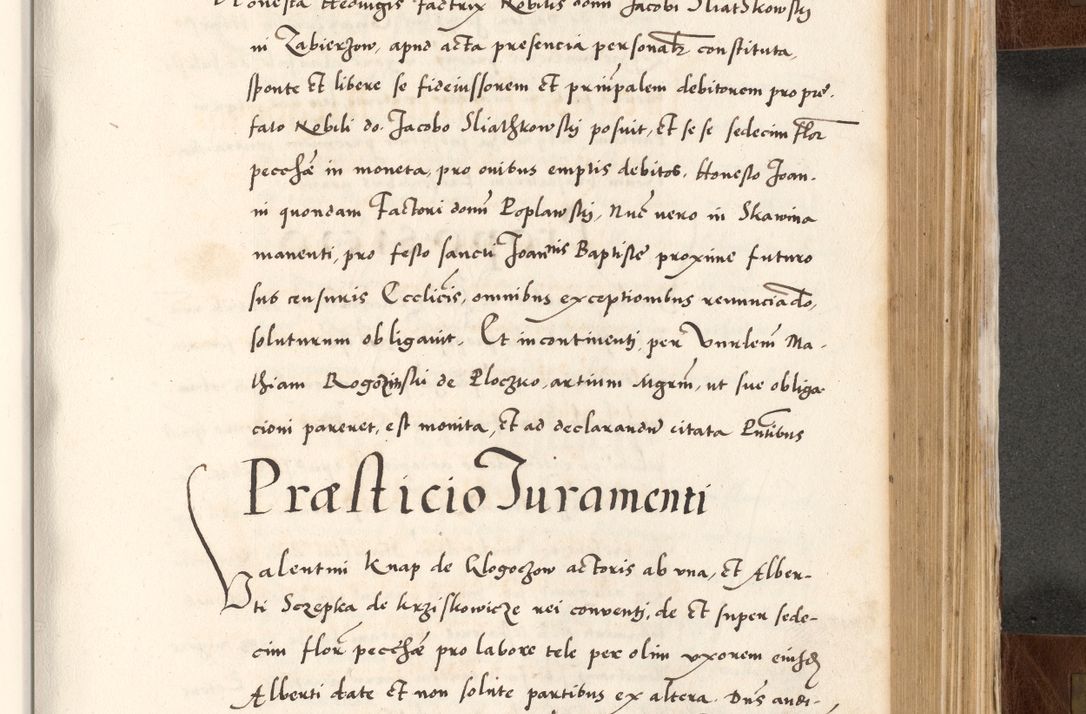 Honesta Hedwigis Factrix Nobilis domi Jacobi Sliathkowskj
ni Zabierzow, apud acta presencia personalr constituta,
sponte Et libere se fideiussorem Et principalem debitorem pro pre-
fato Nobili do. Jacobo Sliathkowskj posuit, Et se se sedecim flor
pecchae in moneta, pro ovibus emptis debitos, Honesto Joan-
ni quondam Factori domi Poplawskj, Nuc vero in Skawina
manenti, pro festo sancti Joannis Baptiste proxime futuro
sub censuris Ecclicis, omnibus exceptionibus renunciado,
soluturum obligavit. Et incontinenti, per Vnrlem Ma-
thiam Rogozinski de Ploczko, artium Mgrm, ut sue obliga
cioni pareret, est monita, Et ad declarandu citata Pntibus
Præsticio Juramenti
Valentini Knap de Klogoczow actoris ab vna, Et Alber-
ti Sczepka de Krziskowicze rei conventi, de Et super sede-
cim flor pecchae pro labore tele per olim vxorem eiusd
Alberti date Et non solute partibus ex altera. Dns audi-